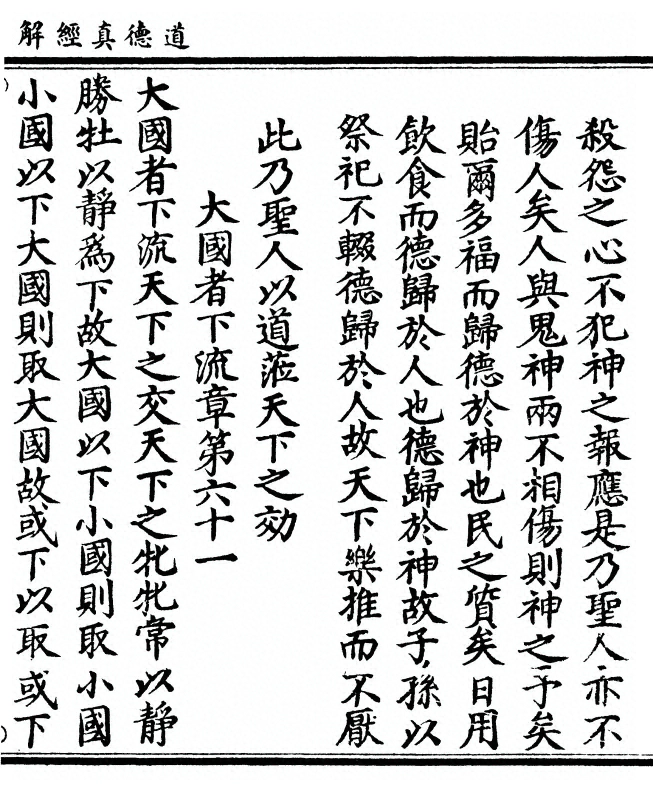 道德真經解
殺怨之心不犯神之報應是乃聖人亦不
傷人矣人與鬼神兩不相傷則神之予矣
貽爾多福而歸德於神也民之質矣日用
飲食而德歸於人也德歸於神故子孫以
祭祀不輟德歸於人故天下樂推而不厭
此乃聖人以道蒞天下之効
大國者下流章第六十一
大國者下流天下之交天下之牝牝常以靜
勝牡以靜為下故大國以下小國則取小國
小國以下大國則取大國故或下以取或下